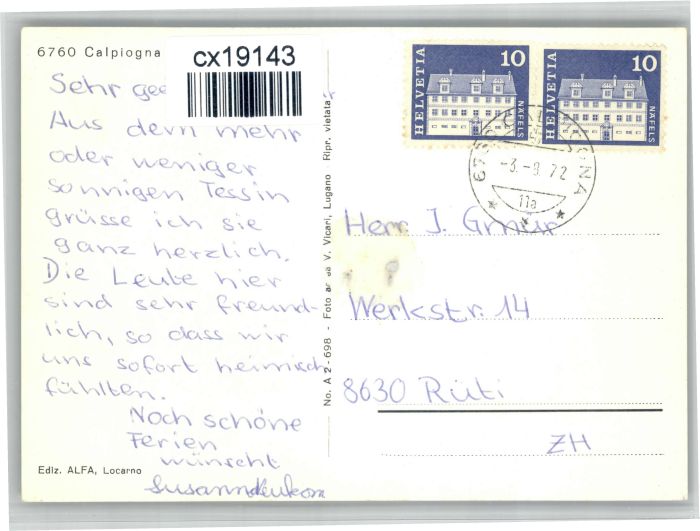 6760 Calpiogna
cx19143
Sehr gee
Aus dem mehr
oder weniger
sonnigen Tessin
grüsse ich sie
ganz herzlich.
Die Leute hier
sind sehr freund-
lich, so dass wir
uns sofort heimisch
fühlten.
Noch schöne
Ferien
wünscht
Ediz. ALFA, Locarno
No. A 2-698 - Foto V. Vicari, Lugano Ripr. vietata
HELVETIA 10 NÄFELS
HELVETIA 10 NÄFELS
-3.-8.72
11a
Herr J. Gmür
Werkstr. 14
8630 Rüti
ZH